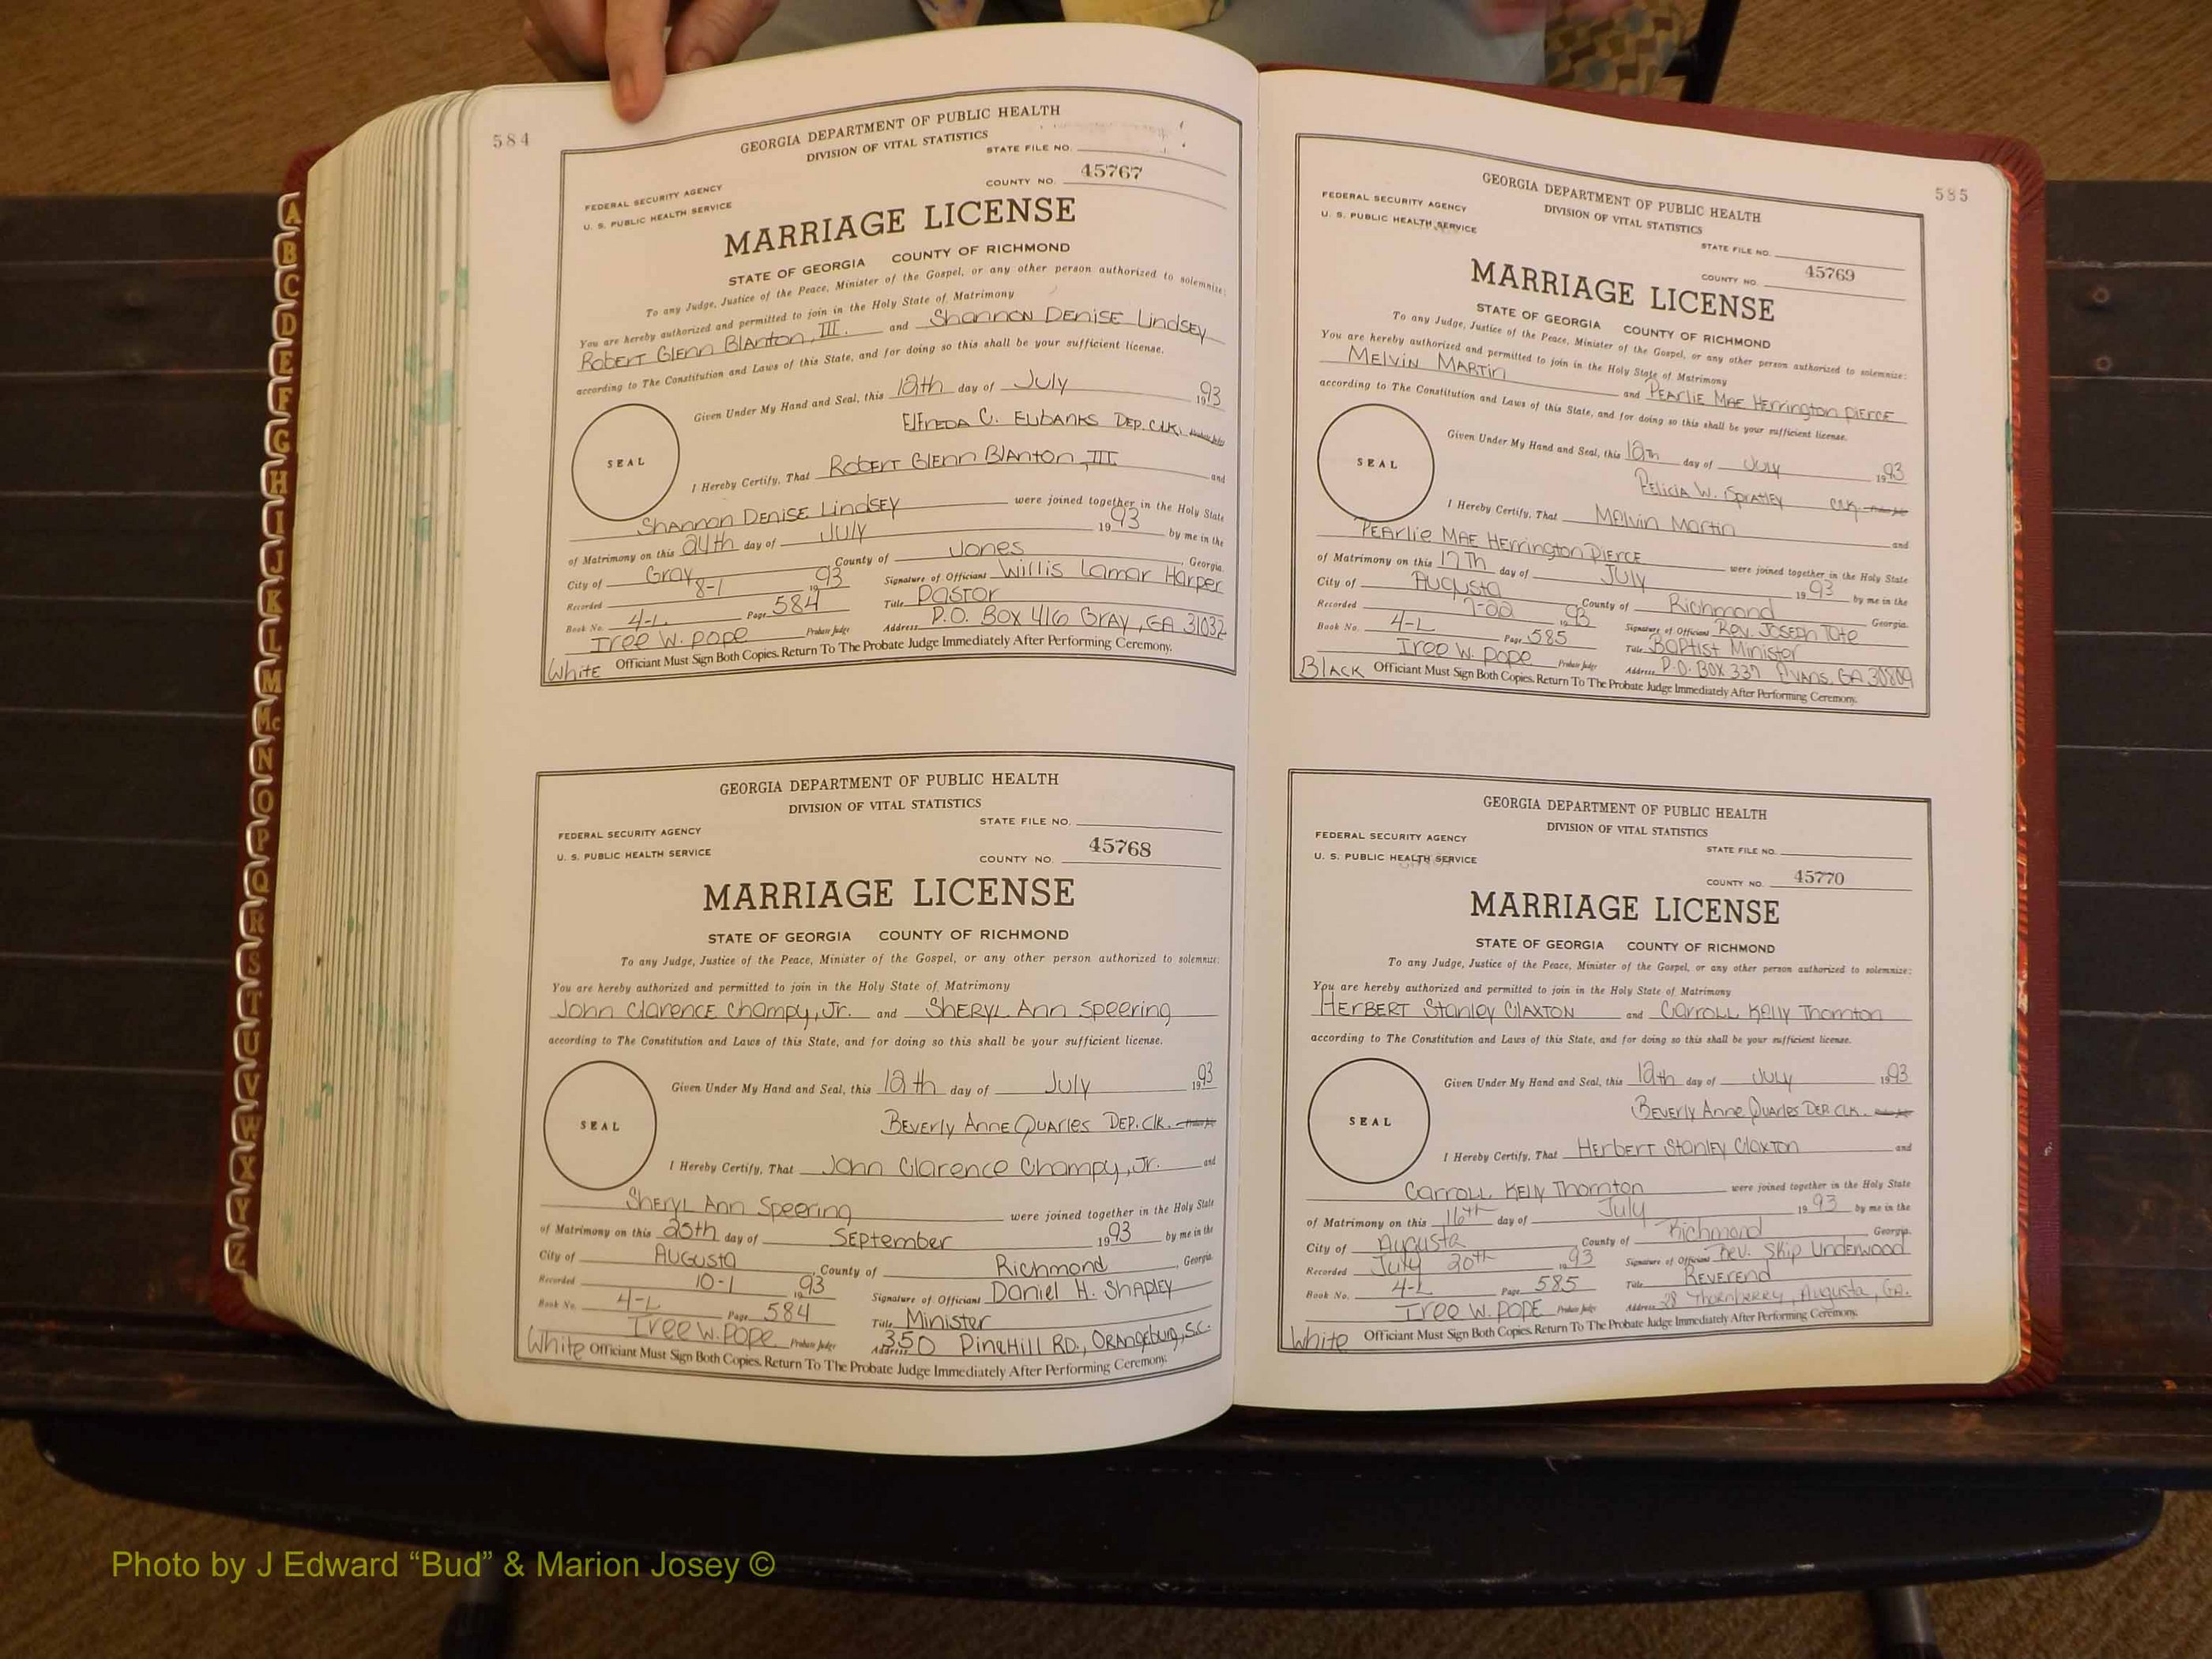 584
GEORGIA DEPARTMENT OF PUBLIC HEALTH
DIVISION OF VITAL STATISTICS
STATE FILE NO.
FEDERAL SECURITY AGENCY
U. S. PUBLIC HEALTH SERVICE
COUNTY NO. 45767
MARRIAGE LICENSE
STATE OF GEORGIA COUNTY OF RICHMOND
To any Judge, Justice of the Peace, Minister of the Gospel, or any other person authorized to solemnize:
You are hereby authorized and permitted to join in the Holy State of Matrimony
Robert Glenn Blanton, III. and Shannon Denise Lindsey
according to The Constitution and Laws of this State, and for doing so this shall be your sufficient license.
Given Under My Hand and Seal, this 12th day of July 1993
Elfreda C. Eubanks Dep. Clk. Probate Judge
SEAL
I Hereby Certify, That Robert Glenn Blanton, III and
Shannon Denise Lindsey were joined together in the Holy State
of Matrimony on this 24th day of July 1993 by me in the
City of Gray County of Jones Georgia.
Recorded 8-1 1993 Signature of Officiant Willis Lamar Harper
Book No. 4-L Page 584 Title Pastor
Iree W. Pope Probate Judge Address P.O. Box 416 Gray, GA 31032
White Officiant Must Sign Both Copies. Return To The Probate Judge Immediately After Performing Ceremony.
GEORGIA DEPARTMENT OF PUBLIC HEALTH
DIVISION OF VITAL STATISTICS
STATE FILE NO.
FEDERAL SECURITY AGENCY
U. S. PUBLIC HEALTH SERVICE
COUNTY NO. 45768
MARRIAGE LICENSE
STATE OF GEORGIA COUNTY OF RICHMOND
To any Judge, Justice of the Peace, Minister of the Gospel, or any other person authorized to solemnize:
You are hereby authorized and permitted to join in the Holy State of Matrimony
John Clarence Champy, Jr. and Sheryl Ann Speering
according to The Constitution and Laws of this State, and for doing so this shall be your sufficient license.
Given Under My Hand and Seal, this 12th day of July 1993
Beverly Anne Quarles Dep. Clk. Probate Judge
SEAL
I Hereby Certify, That John Clarence Champy, Jr. and
Sheryl Ann Speering were joined together in the Holy State
of Matrimony on this 25th day of September 1993 by me in the
City of Augusta, County of Richmond, Georgia.
Recorded 10-1 1993 Signature of Officiant Daniel H. Shapley
Book No. 4-L Page 584 Title Minister
Iree W. Pope Probate Judge Address 350 Pinehill Rd., Orangeburg, S.C.
White Officiant Must Sign Both Copies. Return To The Probate Judge Immediately After Performing Ceremony.
585
GEORGIA DEPARTMENT OF PUBLIC HEALTH
DIVISION OF VITAL STATISTICS
FEDERAL SECURITY AGENCY
U. S. PUBLIC HEALTH SERVICE
STATE FILE NO.
COUNTY NO. 45769
MARRIAGE LICENSE
STATE OF GEORGIA COUNTY OF RICHMOND
To any Judge, Justice of the Peace, Minister of the Gospel, or any other person authorized to solemnize:
You are hereby authorized and permitted to join in the Holy State of Matrimony
Melvin Martin and Pearlie Mae Herrington Pierce
according to The Constitution and Laws of this State, and for doing so this shall be your sufficient license.
Given Under My Hand and Seal, this 12th day of July 1993
Felicia W. Spratley Clk. Probate Judge
SEAL
I Hereby Certify, That Melvin Martin and
Pearlie Mae Herrington Pierce were joined together in the Holy State
of Matrimony on this 17th day of July 1993 by me in the
City of Augusta County of Richmond Georgia.
Recorded 7-22 1993 Signature of Officiant Rev. Joseph Tate
Book No. 4-L Page 585 Title Baptist Minister
Iree W. Pope Probate Judge Address P.O. Box 337 Evans, GA 30809
Black Officiant Must Sign Both Copies. Return To The Probate Judge Immediately After Performing Ceremony.
GEORGIA DEPARTMENT OF PUBLIC HEALTH
DIVISION OF VITAL STATISTICS
FEDERAL SECURITY AGENCY
U. S. PUBLIC HEALTH SERVICE
STATE FILE NO.
COUNTY NO. 45770
MARRIAGE LICENSE
STATE OF GEORGIA COUNTY OF RICHMOND
To any Judge, Justice of the Peace, Minister of the Gospel, or any other person authorized to solemnize:
You are hereby authorized and permitted to join in the Holy State of Matrimony
Herbert Stanley Claxton and Carroll Kelly Thornton
according to The Constitution and Laws of this State, and for doing so this shall be your sufficient license.
Given Under My Hand and Seal, this 12th day of July 1993
Beverly Anne Quarles Dep. Clk. Probate Judge
SEAL
I Hereby Certify, That Herbert Stanley Claxton and
Carroll Kelly Thornton were joined together in the Holy State
of Matrimony on this 16th day of July 1993 by me in the
City of Augusta County of Richmond Georgia.
Recorded July 20th 1993 Signature of Officiant Rev. Skip Underwood
Book No. 4-L Page 585 Title Reverend
Iree W. Pope Probate Judge Address 28 Thornberry, Augusta, GA.
White Officiant Must Sign Both Copies. Return To The Probate Judge Immediately After Performing Ceremony.
A
B
C
D
E
F
G
H
I
J
K
L
M
Mc
N
O
P
Q
R
S
T
U
V
W
X
Y
Z
Photo by J Edward “Bud” & Marion Josey ©